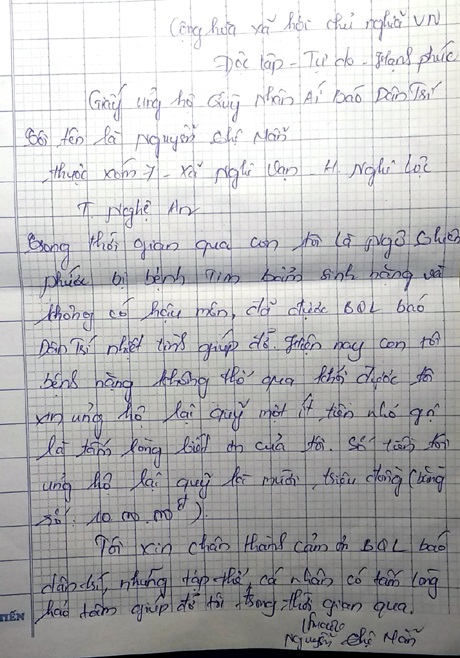 Cộng hòa xã hội chủ nghĩa VN
Độc lập - Tự do - Hạnh phúc
Giấy ủng hộ Quỹ Nhân Ái báo Dân Trí
Tôi tên là Nguyễn Thị Mẫn
thuộc xóm 7 - xã Nghi Vạn - H. Nghi Lộc
T. Nghệ An
Trong thời gian qua con tôi là Ngô Thiên
phước bị bệnh tim bẩm sinh nặng và
không có hậu môn, đã được BQL báo
Dân Trí nhiệt tình giúp đỡ. Hiện nay con tôi
bệnh nặng không thể qua khỏi được tôi
xin ủng hộ lại quỹ một ít tiền nhỏ gọi
là tấm lòng biết ơn của tôi. Số tiền tôi
ủng hộ lại quỹ là mười triệu đồng (bằng
số: 10.000.000đ).
Tôi xin chân thành cảm ơn BQL báo
dân trí, những tập thể, cá nhân có tấm lòng
hảo tâm giúp đỡ tôi trong thời gian qua.
Nguyễn Thị Mẫn
TIẾN